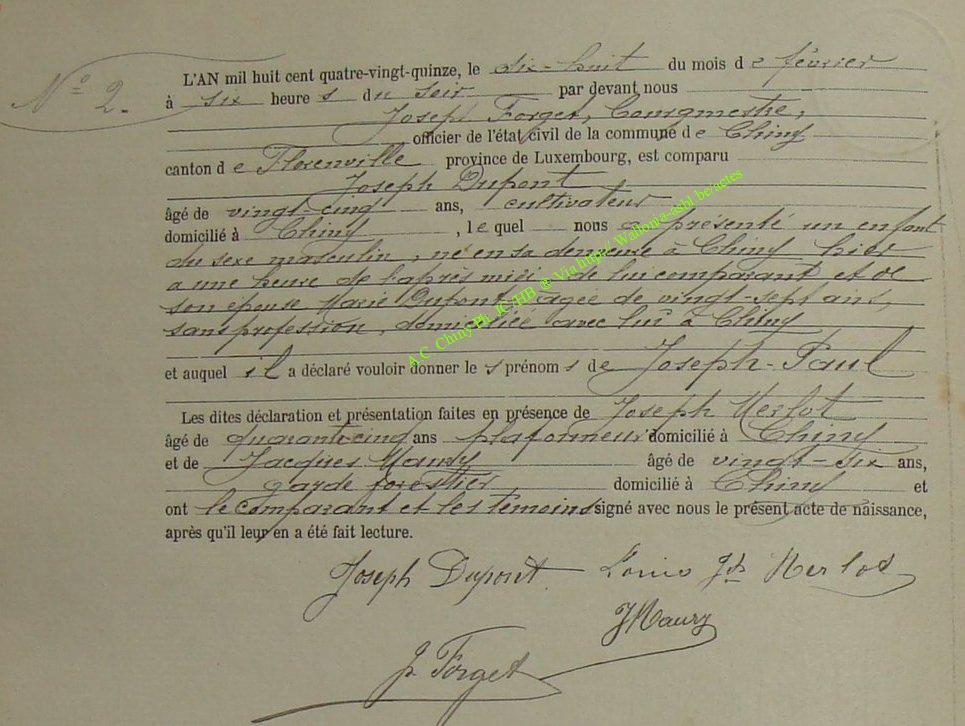 N° 2.
L'AN mil huit cent quatre-vingt-quinze, le dix-huit du mois de février
à six heures du soir par devant nous
Joseph Forget, bourgmestre,
officier de l'état civil de la commune de Chiny
canton de Florenville province de Luxembourg, est comparu
Joseph Dupont
âgé de vingt-cinq ans, cultivateur
domicilié à Chiny, lequel nous a présenté un enfant
du sexe masculin, né en sa demeure à Chiny hier
a une heure de l'après midi de lui comparant et de
son épouse Marie Dupont, agée de vingt-sept ans,
sans profession, domiciliée avec lui à Chiny
et auquel il a déclaré vouloir donner les prénoms de Joseph-Paul
Les dites déclaration et présentation faites en présence de Joseph Merlot
âgé de quarante cinq ans plafonneur domicilié à Chiny
et de Jacques Maury âgé de vingt-six ans,
garde forestier, domicilié à Chiny et
ont le comparant et les témoins signé avec nous le présent acte de naissance,
après qu'il leur en a été fait lecture.
Joseph Dupont Jh Merlot
J Maury
J. Forget
A.C. Chiny Ph. JC/HH @ Via http// Wallonia-asbl be/actes